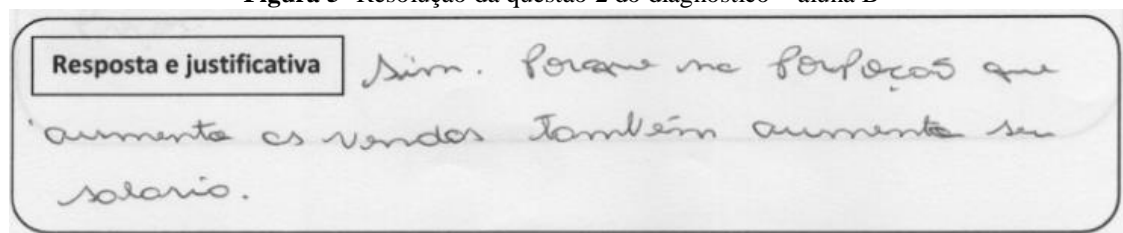 Figura 3- Resolução da questão 2 do diagnóstico – aluna B
Resposta e justificativa Sim. Porque na porporção que
aumenta as vendas também aumenta seu
salario.